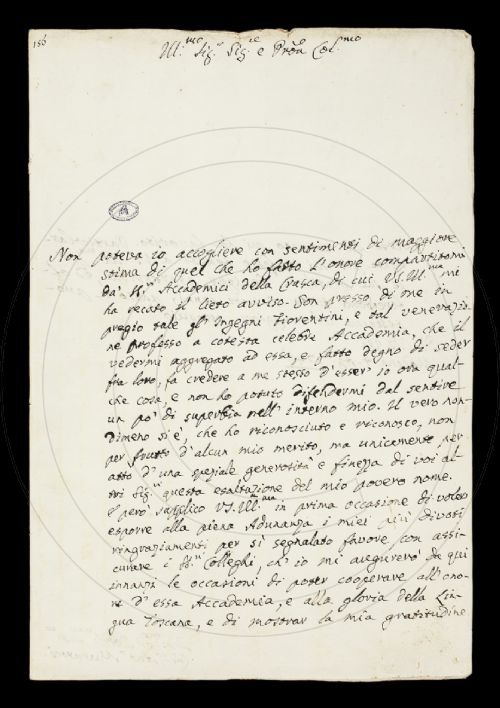 156
Ill.mo Sig.r Sig.re e Pron Col.mo
Non poteva io accogliere con sentimenti di maggiore
stima di quel che ho fatto l'onore compartitomi
da' SS.ri Accademici della Crusca, di cui VS. Ill.ma mi
ha recato il lieto avviso. Son presso di me in
pregio tale gl' Ingegni Fiorentini, e tal venerazio-
ne professo a cotesta celebre Accademia, che il
vedermi aggregato ad essa, e fatto degno di seder
fra loro, fa credere a me stesso d'esser io ora qual-
che cosa, e non ho potuto difendermi dal sentire
un po' di superbia nell' interno mio. Il vero non-
dimeno si è, che ho riconosciuto e riconosco, non
per frutto d'alcun mio merito, ma unicamente per
atto d'una speziale generosità e finezza di voi al-
tri Sig.ri questa esaltazione del mio povero nome.
E però supplico VS. Ill.ma in prima occasione di voler
esporre alla piena Adunanza i miei più divoti
ringraziamenti per sì segnalato favore con assi-
curare i SS.ri Colleghi, ch' io mi augurerò da qui
innanzi le occasioni di poter cooperare all' ono-
re d' essa Accademia, e alla gloria della Lin-
gua Toscana, e di mostrar la mia gratitudine